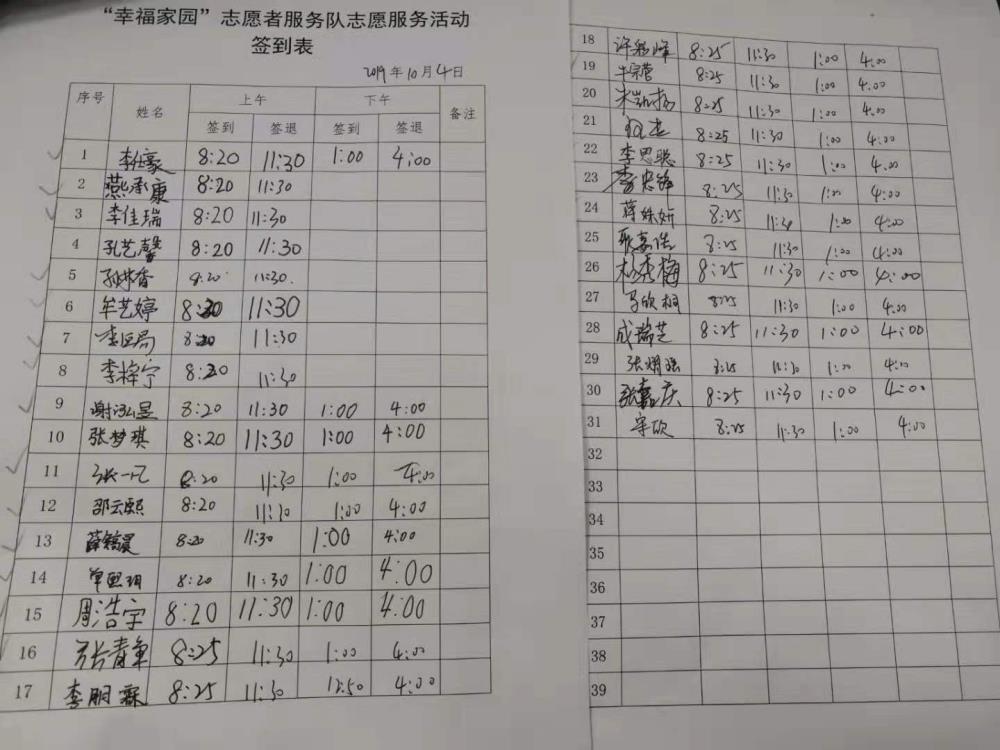 “幸福家园”志愿者服务队志愿服务活动
签到表
2019年10月4日
序号 姓名 上午 下午 备注
签到 签退 签到 签退
1 李仕豪 8:20 11:30 1:00 4:00
2 燕承康 8:20 11:30
3 李佳瑞 8:20 11:30
4 孔艺馨 8:20 11:30
5 8:20 11:30
6 牟艺婷 8:20 11:30
7 8:20 11:30
8 李梓宁 8:20 11:30
9 谢泓昱 8:20 11:30 1:00 4:00
10 张梦琪 8:20 11:30 1:00 4:00
11 张一凡 8:20 11:30 1:00 4:00
12 邵云熙 8:20 11:30 1:00 4:00
13 8:20 11:30 1:00 4:00
14 单熙玥 8:20 11:30 1:00 4:00
15 周浩宇 8:20 11:30 1:00 4:00
16 张青单 8:25 11:30 1:00 4:00
17 李朋霖 8:25 11:30 12:50 4:00
18 8:25 11:30 1:00 4:00
19 牛宗萱 8:25 11:30 1:00 4:00
20 8:25 11:30 1:00 4:00
21 8:25 11:30 1:00 4:00
22 李思聪 8:25 11:30 1:00 4:00
23 8:25 11:30 1:00 4:00
24 蒋姝妍 8:25 11:30 1:00 4:00
25 8:25 11:30 1:00 4:00
26 杨秀梅 8:25 11:30 1:00 4:00
27 马欣桐 8:25 11:30 1:00 4:00
28 成瑞芝 8:25 11:30 1:00 4:00
29 8:25 11:30 1:00 4:00
30 张嘉庆 8:25 11:30 1:00 4:00
31 宋欣 8:25 11:30 1:00 4:00
32
33
34
35
36
37
38
39